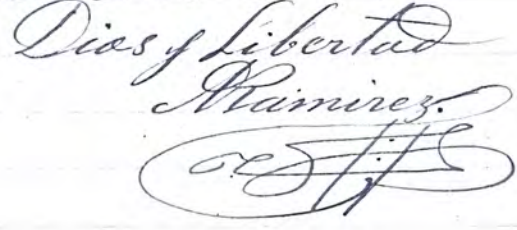 Dios y Libertad
ARamirez.